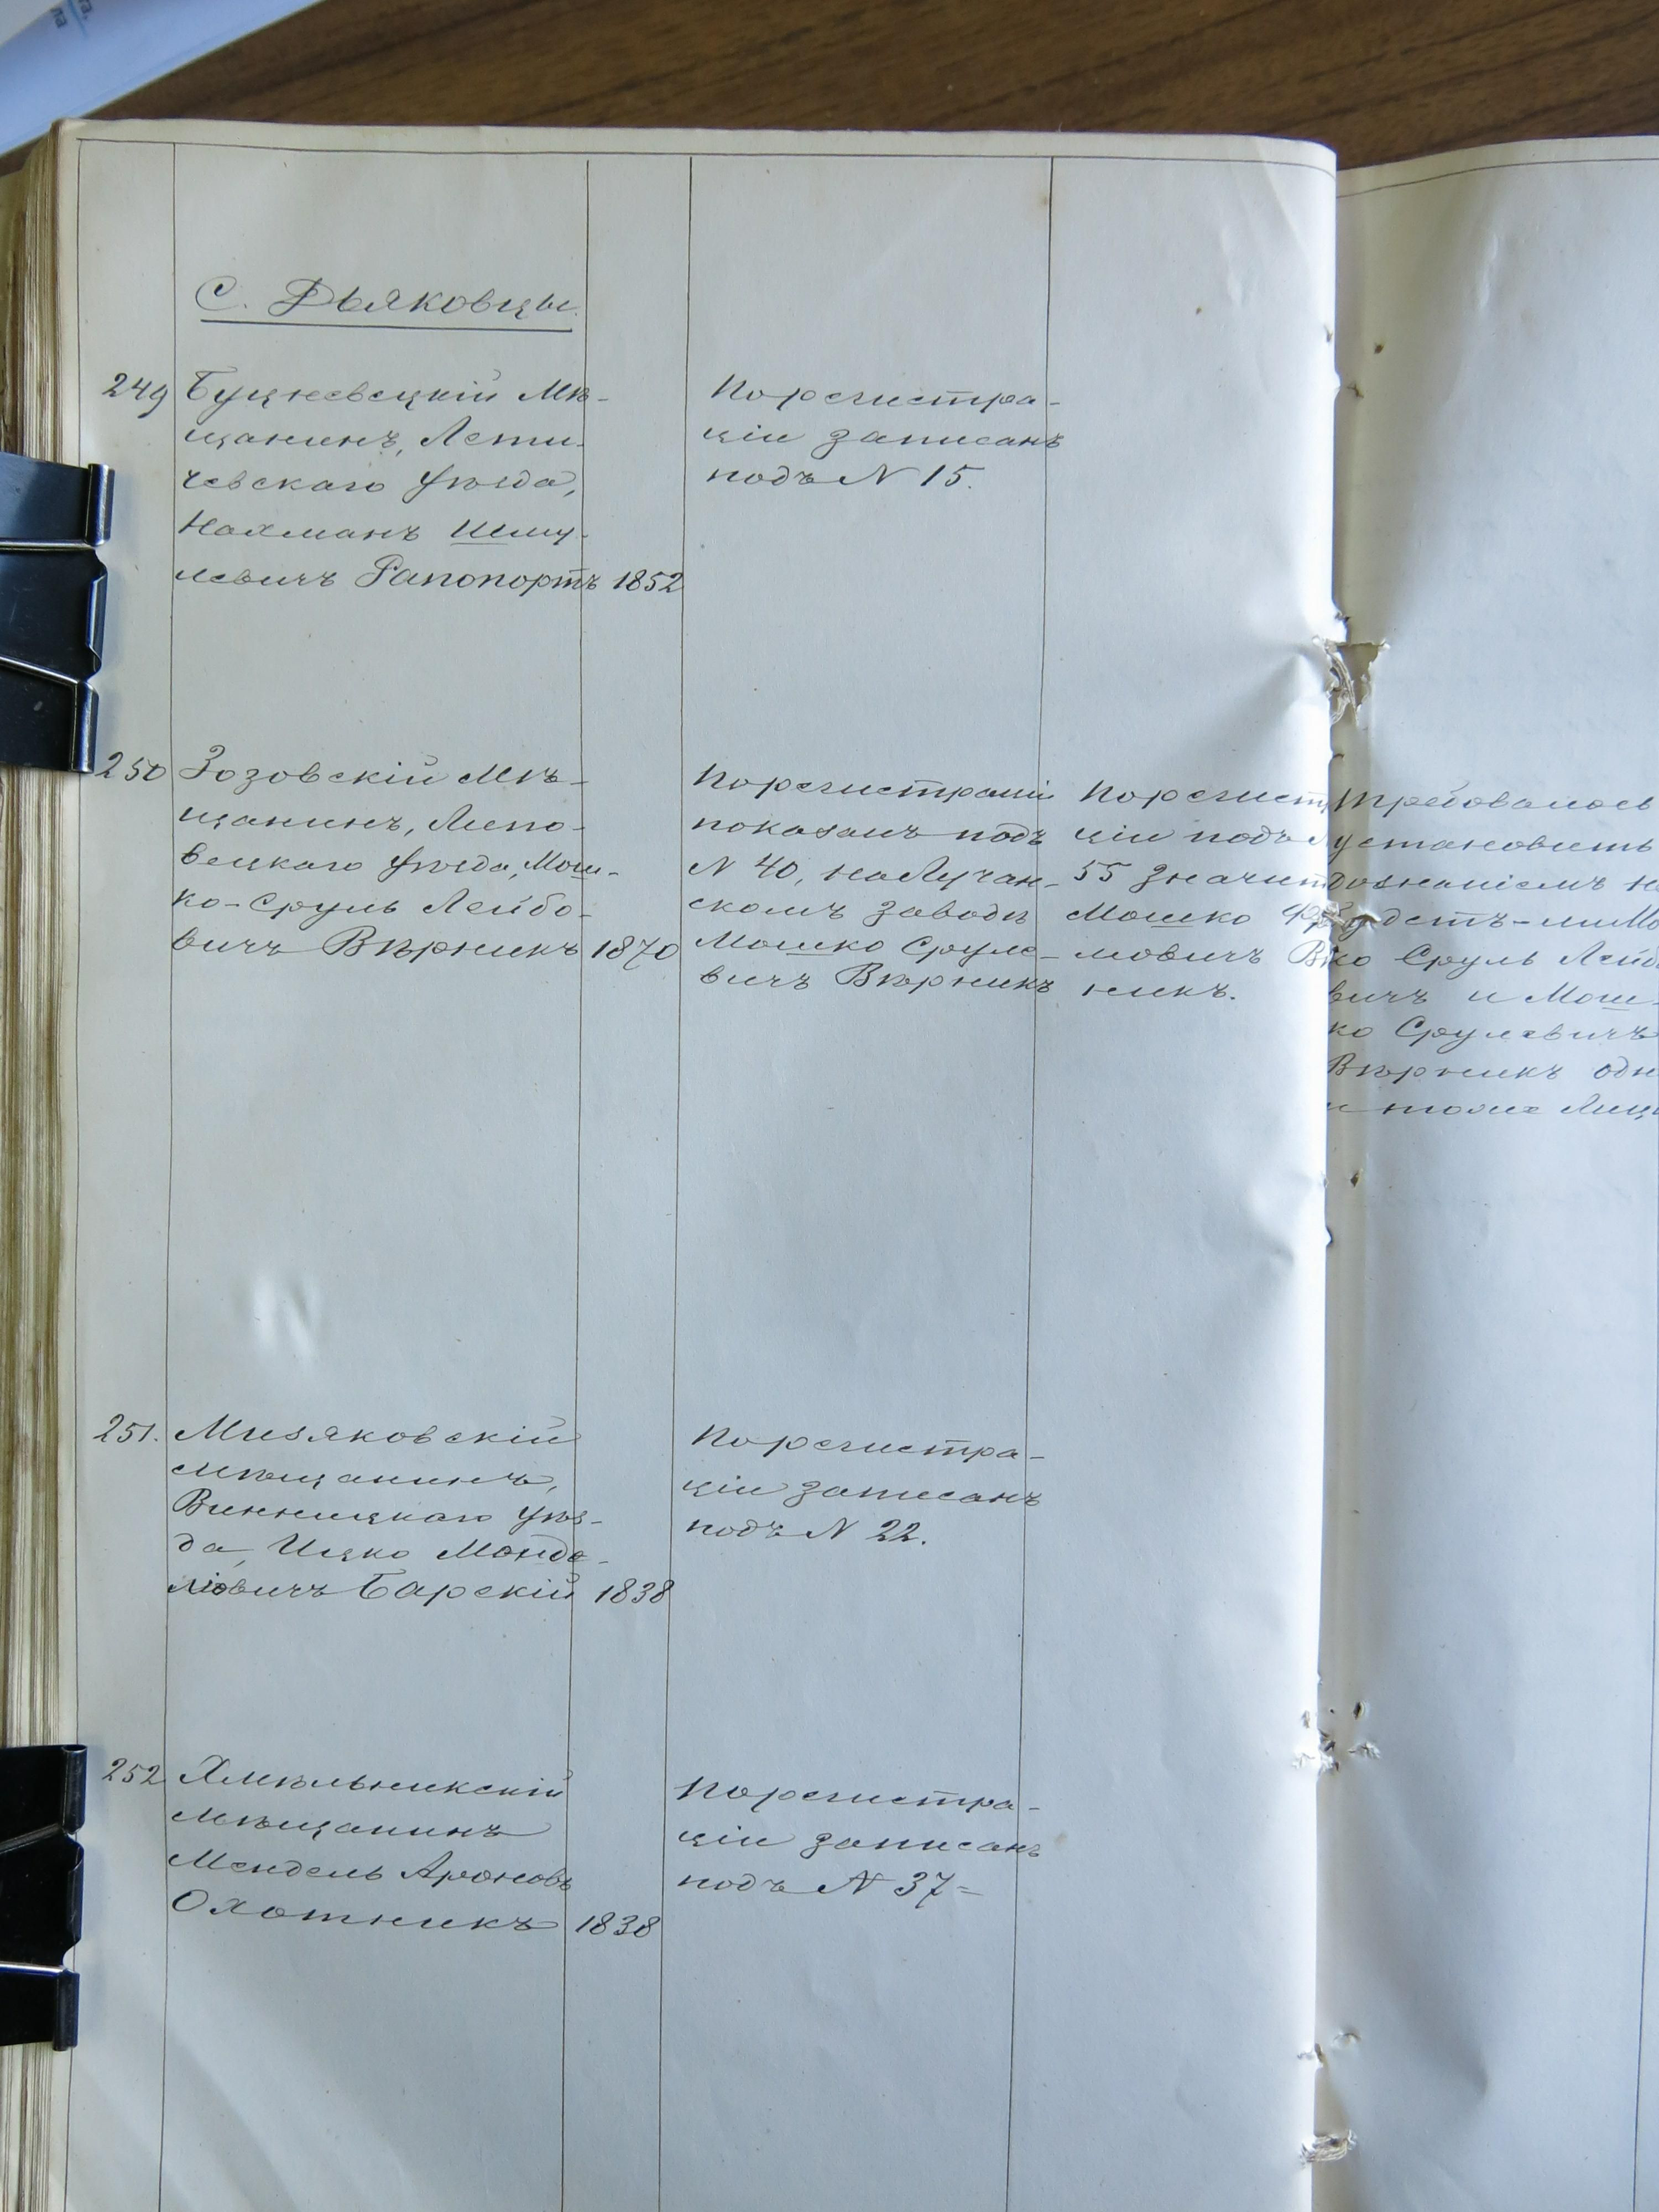 С. Дьяковцы.
249 Буцневецкій Мѣ-
щанинъ, Лети-
чевскаго уѣзда,
Нахманъ Шму-
левичъ Рапопортъ 1852
По регистра-
ціи записанъ
подъ N 15.
250 Зозовскій Мѣ-
щанинъ, Липо-
вецкаго уѣзда, Мош-
ко-Сруль Лейбо-
вичъ Вѣрникъ 1870
По регистраціи
показанъ подъ
N 40, на Лучан-
скомъ заводѣ
Мошко Сруле-
вичъ Вѣрникъ
По регист
ціи подъ
55 значит
Мошко
мовичъ В
никъ.
требовалось
установить
дознаніемъ н
удетъ-ли Мо
ко Сруль Лейб
вичъ и Мош-
ко Срулевичъ
Вѣрникъ одн
и тоже Лиц
251. Мизяковскій
мѣщанинъ,
Винницкаго уѣз-
да, Ицко Менде-
лiовичъ Барскій 1838
По регистра-
ціи записанъ
подъ N 22.
252 Хмѣльникскій
мѣщанинъ
Мендель Ароновъ
Охотникъ 1838
По регистра-
ціи записанъ
подъ N 37=